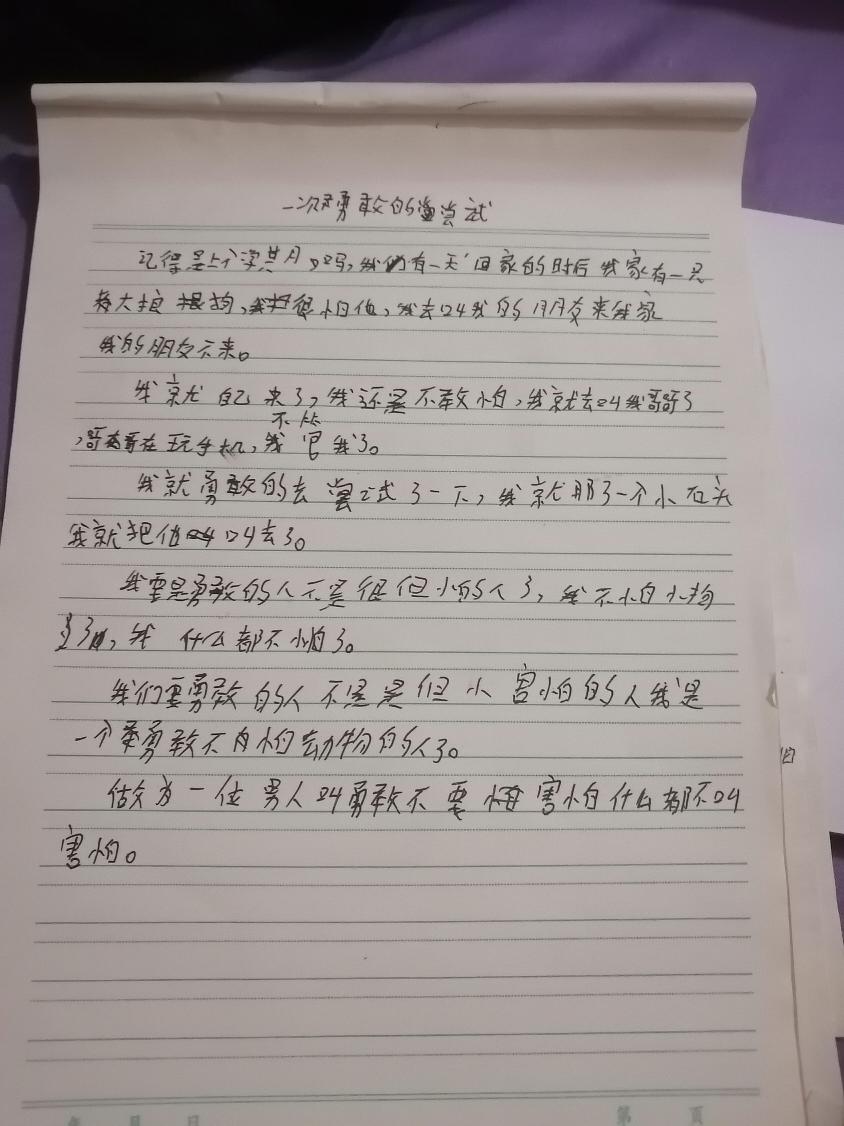 一次勇敢的尝试
记得是上个学其月,我们有一天回家的时后我家有一只
很大狼狗,我很怕他,我去叫我的朋友来我家
我的朋友不来。
我就自己来了,我还是不敢怕,我就去叫我哥哥了
不怂
,哥哥在玩手机,我官我了。
我就勇敢的去尝试了一下,我就那了一个小石头
我就把他叫去了。
我要是勇敢的人不是很但小的人了,我不怕小狗
了,我什么都不怕了。
我们要勇敢的人不是是但小害怕的人我是
一个勇敢不怕动物的人了。
做为一位男人叫勇敢不要害怕什么都不叫
害怕。
年 月 日 第 页